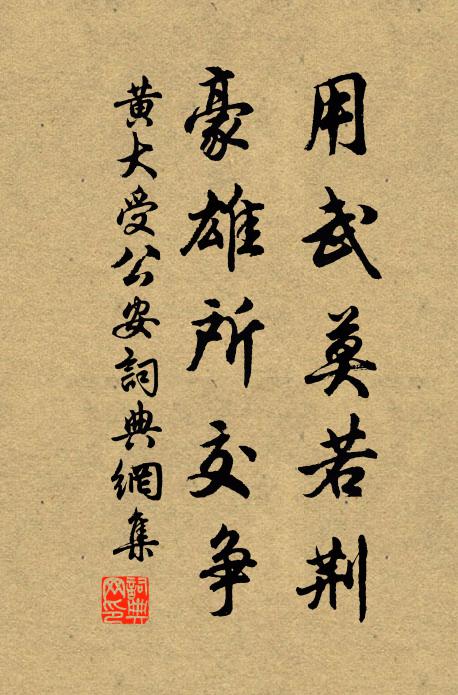 用武莫若荆
豪雄所交争
黄大受公安詞典網集
詞典网印